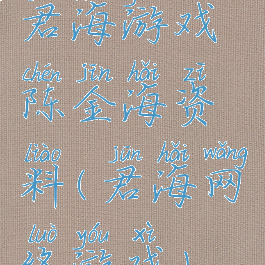 君海游戏
chén jīn hǎi zī
陈金海资
liào jūn hǎi wǎng
料(君海网
luò yóu xì
络游戏)